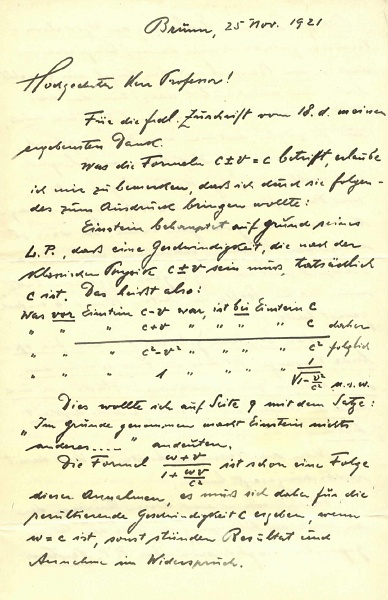 Brünn, 25 Nov. 1921
Hochgeehrter Herr Professor!
Für die frdl. Zuschrift vom 18. d. meinen
ergebensten Dank.
Was die Formeln c ± v = c betrifft, erlaube
ich mir zu bemerken, daß ich durch sie folgen-
des zum Ausdruck bringen wollte:
Einstein behauptet auf grund seines
L.P., daß eine Geschwindigkeit, die nach der
klassischen Physik c ± v sein muß, tatsächlich
c ist. Das heißt also:
Was vor Einstein c-v war, ist bei Einstein c
" " " c+v " " " " c daher
" " " c²-v² " " " " c² folglich
" " " 1 " " " " 1/√(1-v²/c²) u.s.w.
Dies wollte ich auf Seite 9 mit dem Satze:
„Im grunde genommen macht Einstein nichts
anderes....." andeuten.
Die Formel (w+v)/(1+wv/c²) ist schon eine Folge
dieser Annahmen, es muß sich daher für die
resultierende Geschwindigkeit c ergeben, wenn
w = c ist, sonst stünden Resultat und
Annahme im Widerspruch.